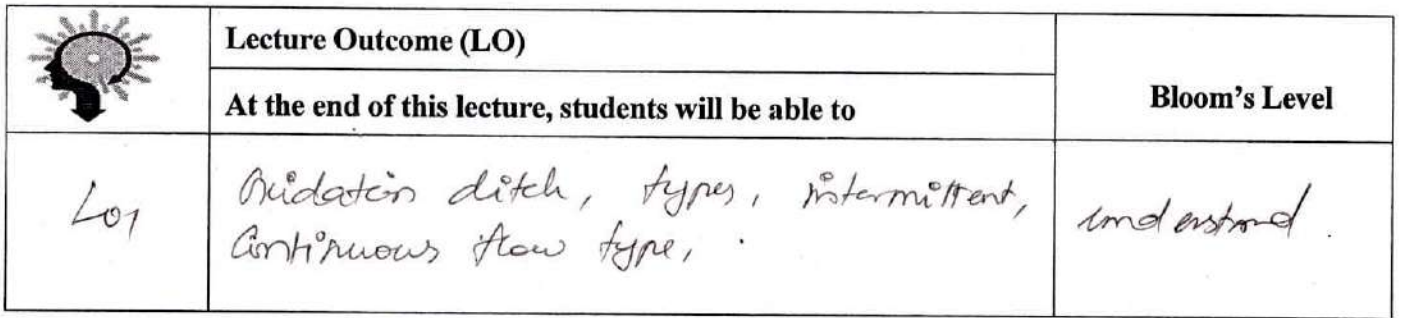 Lecture Outcome (LO)
At the end of this lecture, students will be able to
Bloom's Level
LO1
Oxidation ditch, types, intermittent,
Continuous flow type,
understand.